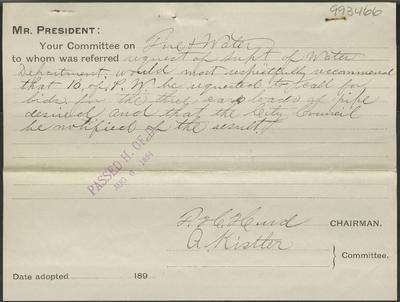 993466
MR. PRESIDENT:
Your Committee on Fire & Water
to whom was referred request of Supt of Water
Department, would most respectfully recommend
that B. of P. W. be requested to call for
bids for the three car loads of pipe
desired and that the City Council
be notified of the result.
PASSED H. OF D.
AUG 6 1891
F. H. Hurd CHAIRMAN.
A. Kistler
Committee.
Date adopted 189